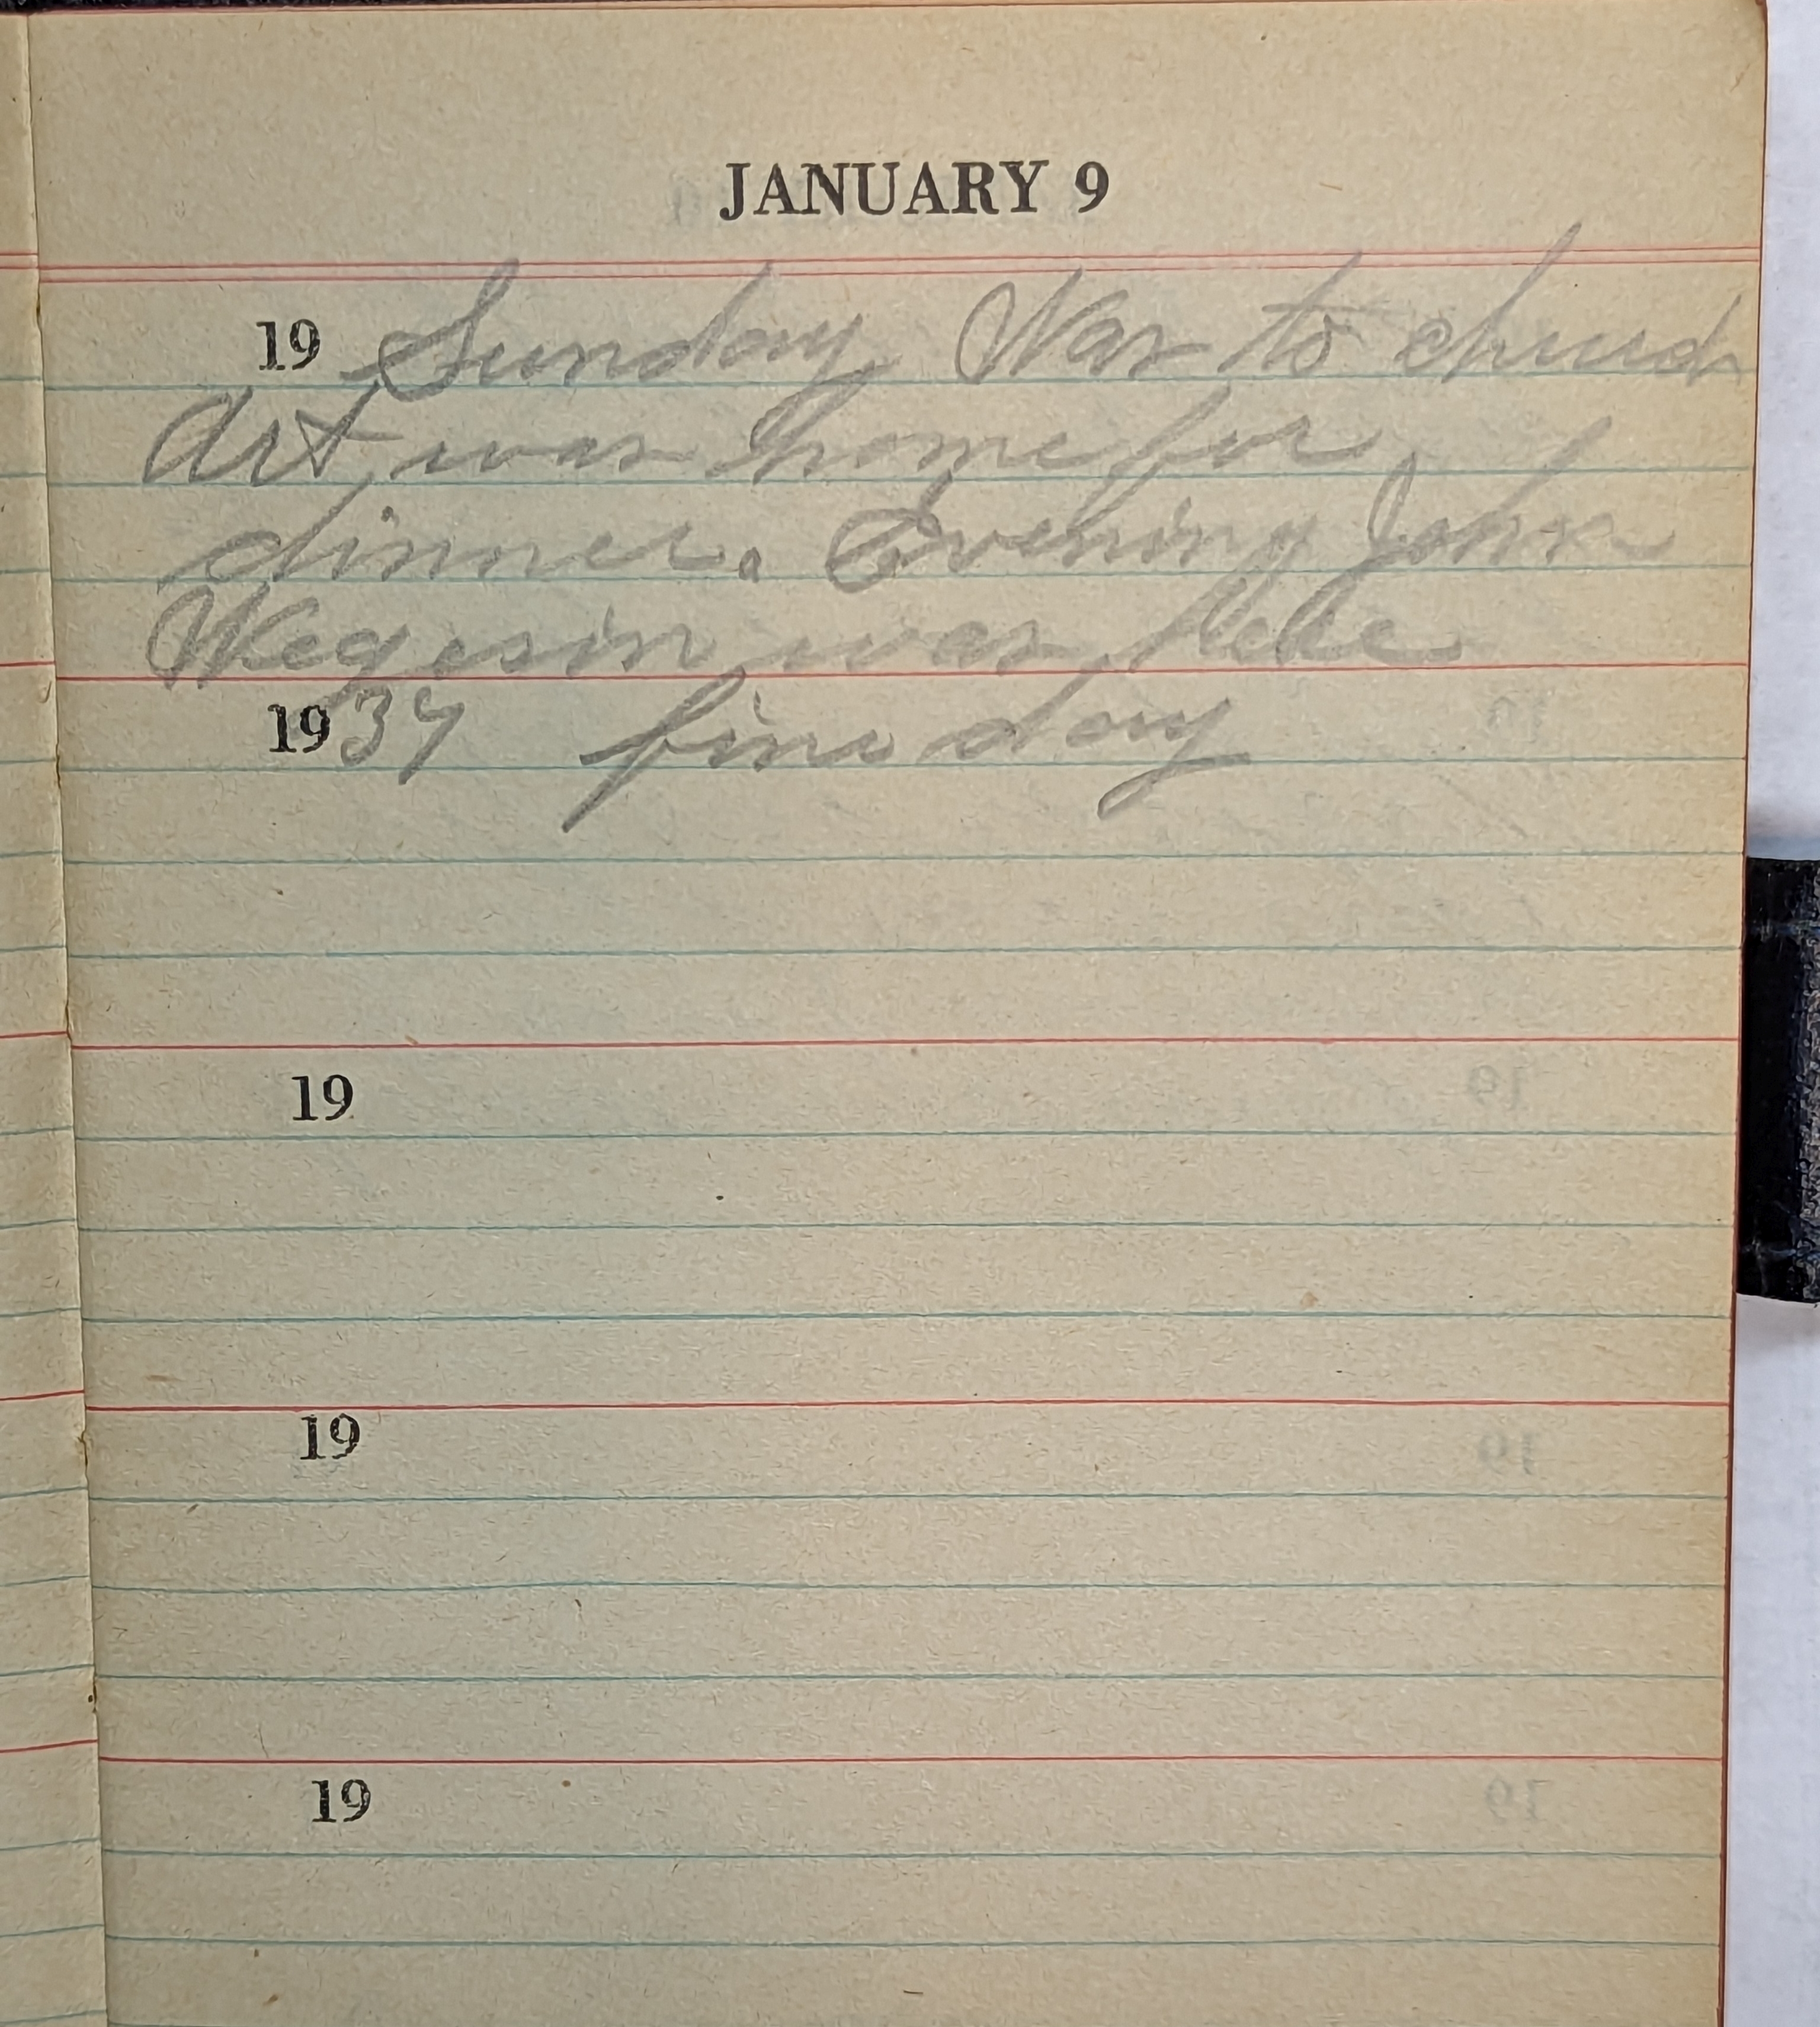 JANUARY 9
19 Sunday Was to church
Art was home for
dinner. Evening John
Wegesin was here
1937 fine day
19
19
19